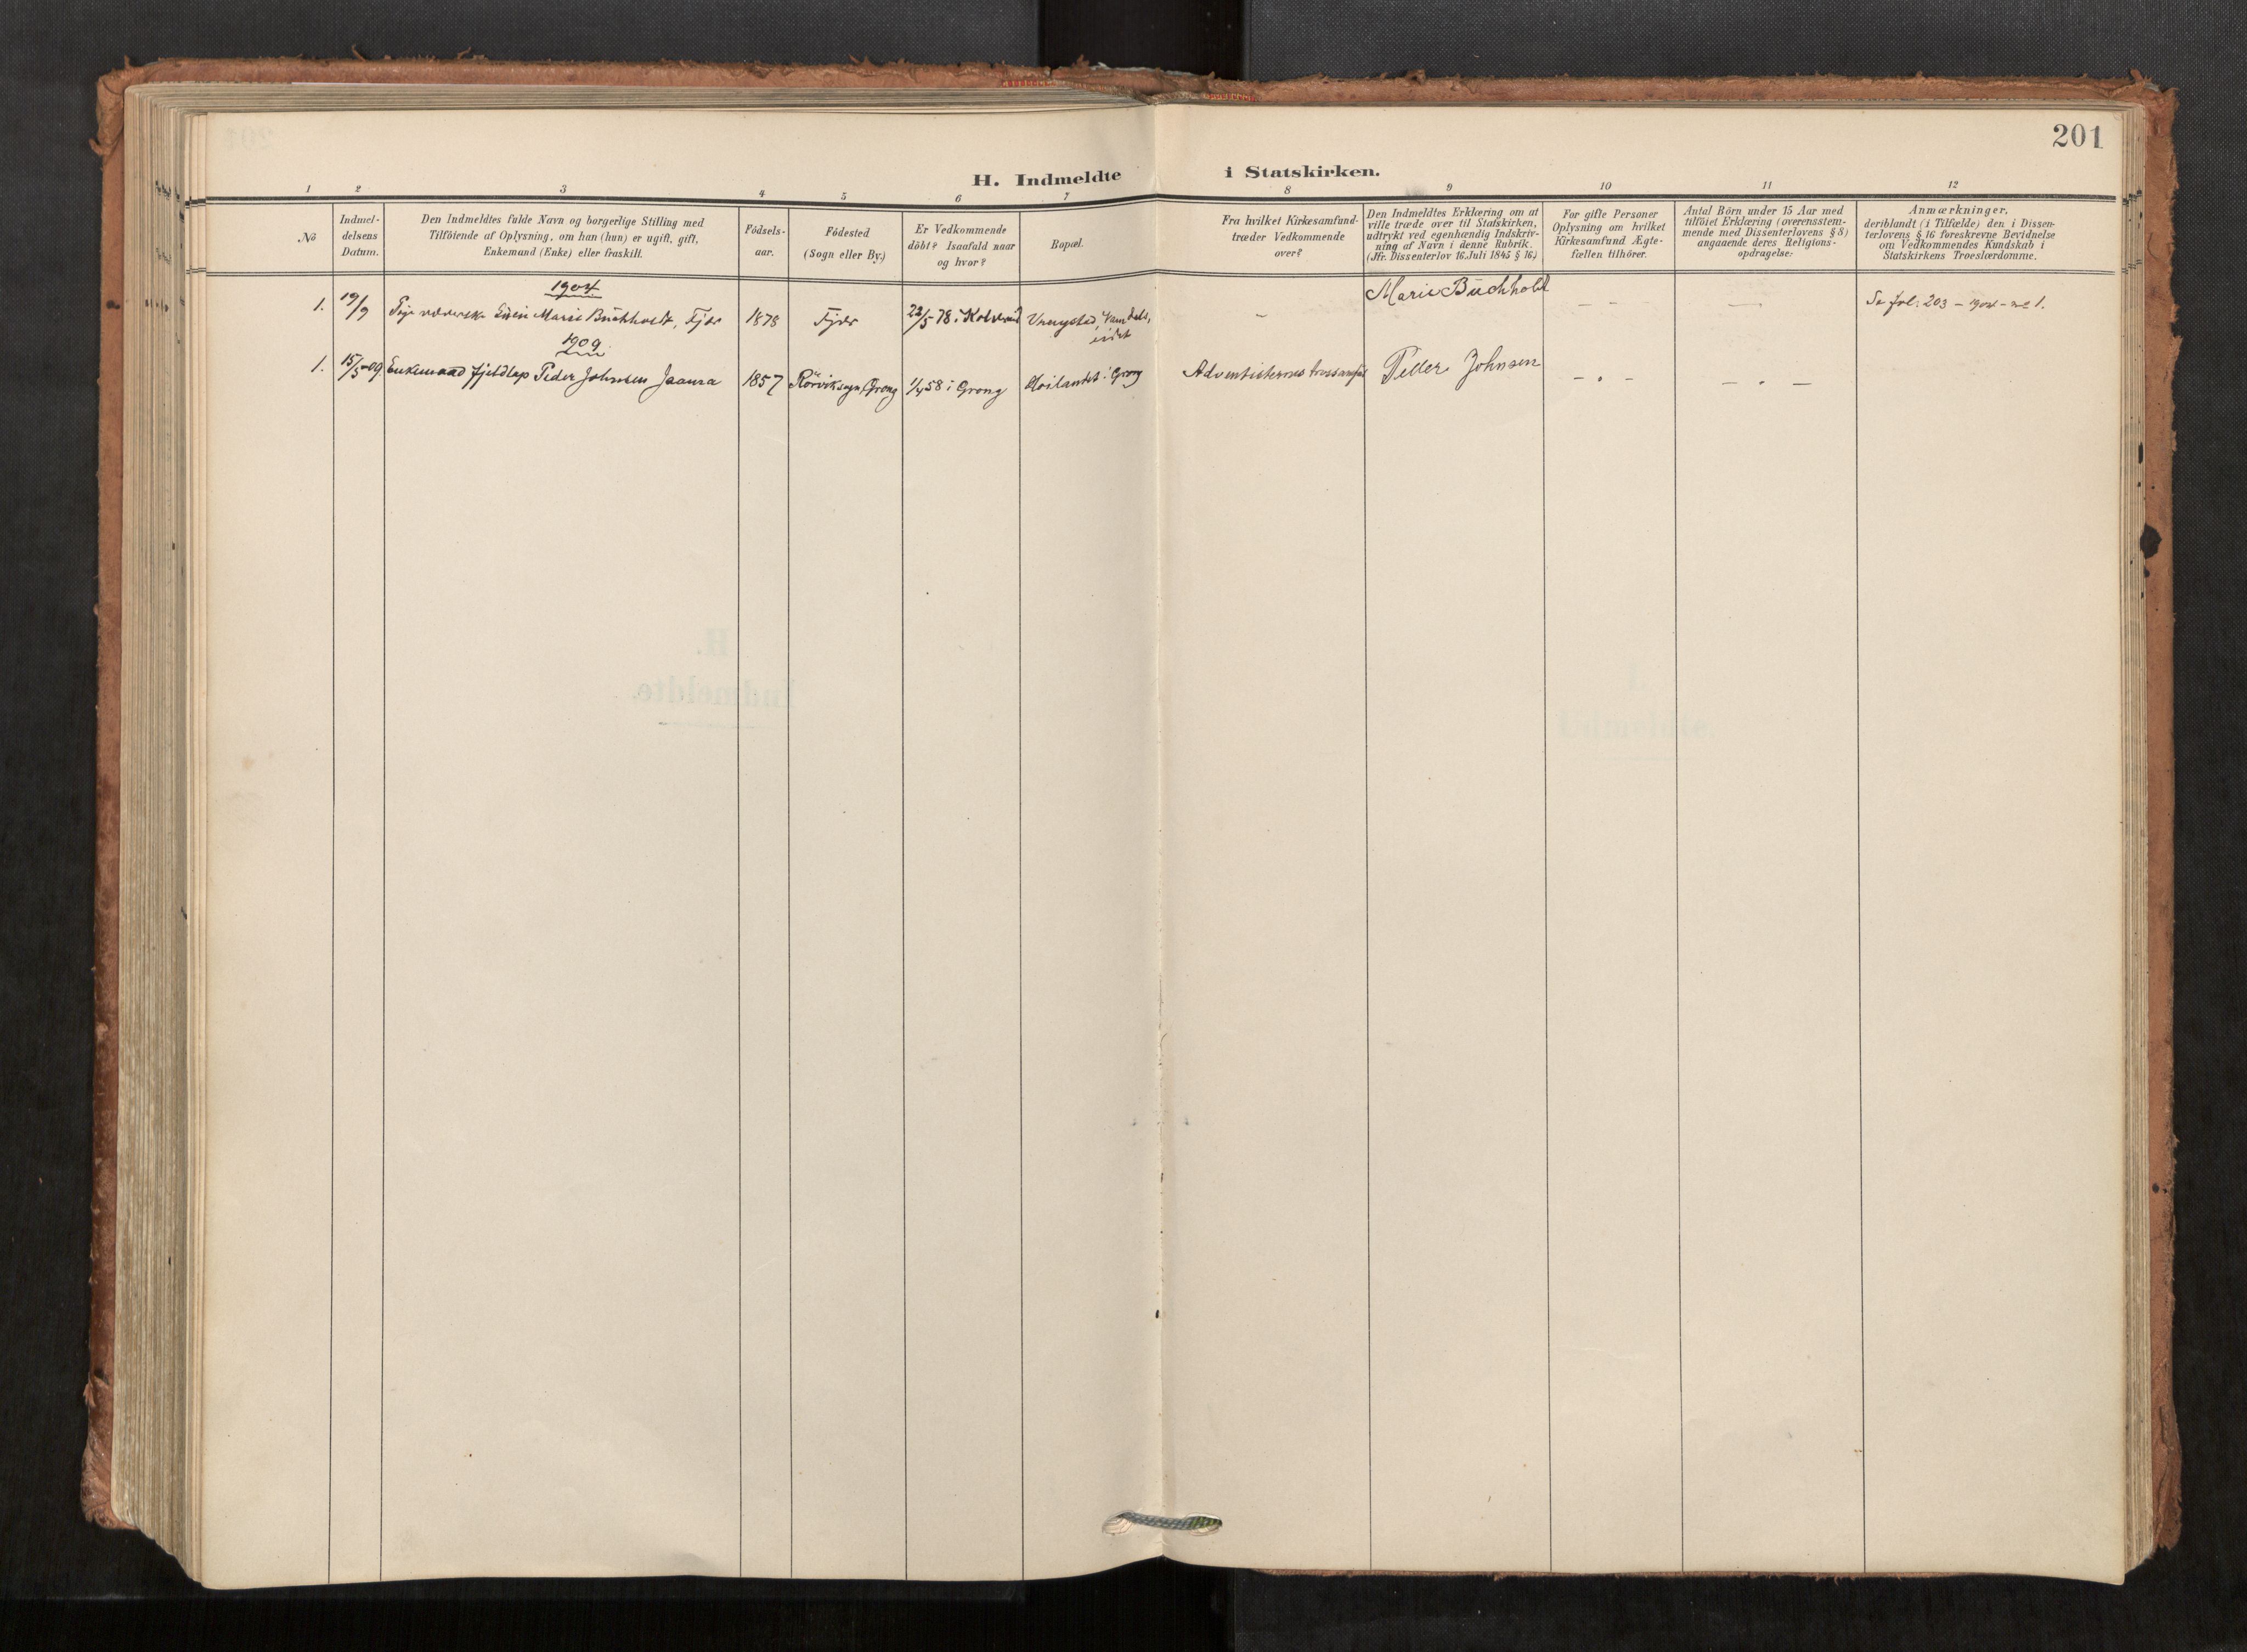 201
H. Indmeldte i Statskirken.
1 2 3 4 5 6 7 8 9 10 11 12
No
Indmeldelsens Datum.
Den Indmeldtes fulde Navn og borgerlige Stilling med
Tilföiende af Oplysning, om han (hun) er ugift, gift,
Enkemand (Enke) eller fraskilt.
Födsels-
aar.
Födested
(Sogn eller By.)
Er Vedkommende
döbt? Isaafald naar
og hvor?
Bopæl.
Fra hvilket Kirkesamfund
træder Vedkommende
over?
Den Indmeldtes Erklæring om at
ville træde over til Statskirken,
udtrykt ved egenhændig Indskriv-
ning af Navn i denne Rubrik.
(Jfr. Dissenterlov 16. Juli 1845 § 16.)
For gifte Personer
Oplysning om hvilket
Kirkesamfund Ægte-
fællen tilhörer.
Antal Börn under 15 Aar med
tilföiet Erklæring (overensstem-
mende med Dissenterlovens § 8)
angaaende deres Religions-
opdragelse.
Anmærkninger,
deriblandt (i Tilfælde) den i Dissen-
terlovens § 16 foreskrevne Bevidnelse
om Vedkommendes Kundskab i
Statskirkens Troeslærdomme.
1904
1. 19/9 Pige Marie Buchholdt, Fjær 1878 Fjær 22/5 78 i – Marie Buchholdt – – — Se fol: 203 – 1904 – no 1.
1909
1. 15/5 09 Enkemand fjeldlap Peder Johnsen Jaama 1857 Rörviksogn, Grong 1/4 58 i Grong Höilandet i Grong Adventisternes trossamfund Peder Johnsen – " – – " –